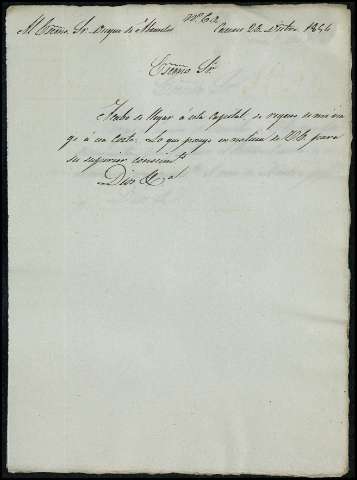 Al Excmo. Sr. Duque de
23. 1854
Excmo Sr.
Acabo de llegar á esta Capital, de regreso de mi via
ge á esa Corte. Lo que pongo en noticia de V.E. para
su superior conocimto.
Dios &a